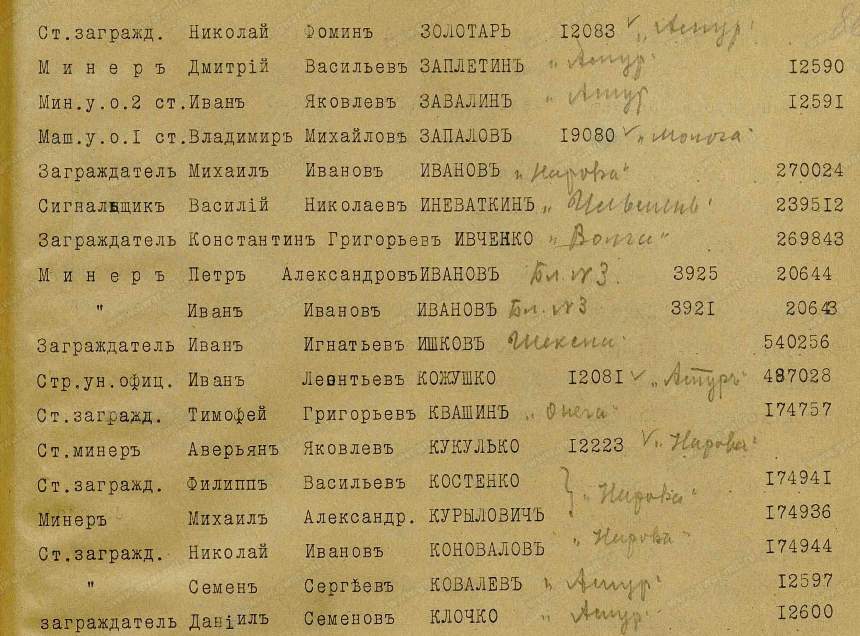 Ст.загражд. Николай Фоминъ ЗОЛОТАРЬ I2083 ✓ „Амуръ"
М и н е р ъ Дмитрій Васильевъ ЗАПЛЕТИНЪ „Амуръ" I2590
Мин.у.о.2 ст.Иванъ Яковлевъ ЗАВАЛИНЪ „Амуръ I259I
Маш.у.о.I ст.Владимиръ Михайловъ ЗАПАЛОВЪ I9080 ✓ „Молога"
Заградждатель Михаилъ Ивановъ ИВАНОВЪ „Нарова" 270024
Сигнальщикъ Василій Николаевъ ИНЕВАТКИНЪ „Ильмень" 2395I2
Заграждатель Константинъ Григорьевъ ИВЧЕНКО „Волга" 269843
М и н е р ъ Петръ Александровъ ИВАНОВЪ Бл. №3. 3925 20644
" Иванъ Ивановъ ИВАНОВЪ Бл. №3 392I 20643
Заграждатель Иванъ Игнатьевъ ИШКОВЪ Шексна 540256
Стр.ун.офиц. Иванъ Леонтьевъ КОЖУШКО I208I ✓ „Амуръ" 487028
Ст.загражд. Тимофей Григорьевъ КВАШИНЪ „Онега" I74757
Ст.минеръ Аверьянъ Яковлевъ КУКУЛЬКО I2223 ✓ „Нарова"
Ст.загражд. Филиппъ Васильевъ КОСТЕНКО } „Нарова" I7494I
Минеръ Михаилъ Александр. КУРЫЛОВИЧЪ I74936
Ст.загражд. Николай Ивановъ КОНОВАЛОВЪ „Нарова" I74944
" Семенъ Сергѣевъ КОВАЛЕВЪ „Амуръ" I2597
заграждатель Даніилъ Семеновъ КЛОЧКО „Амуръ" I2600